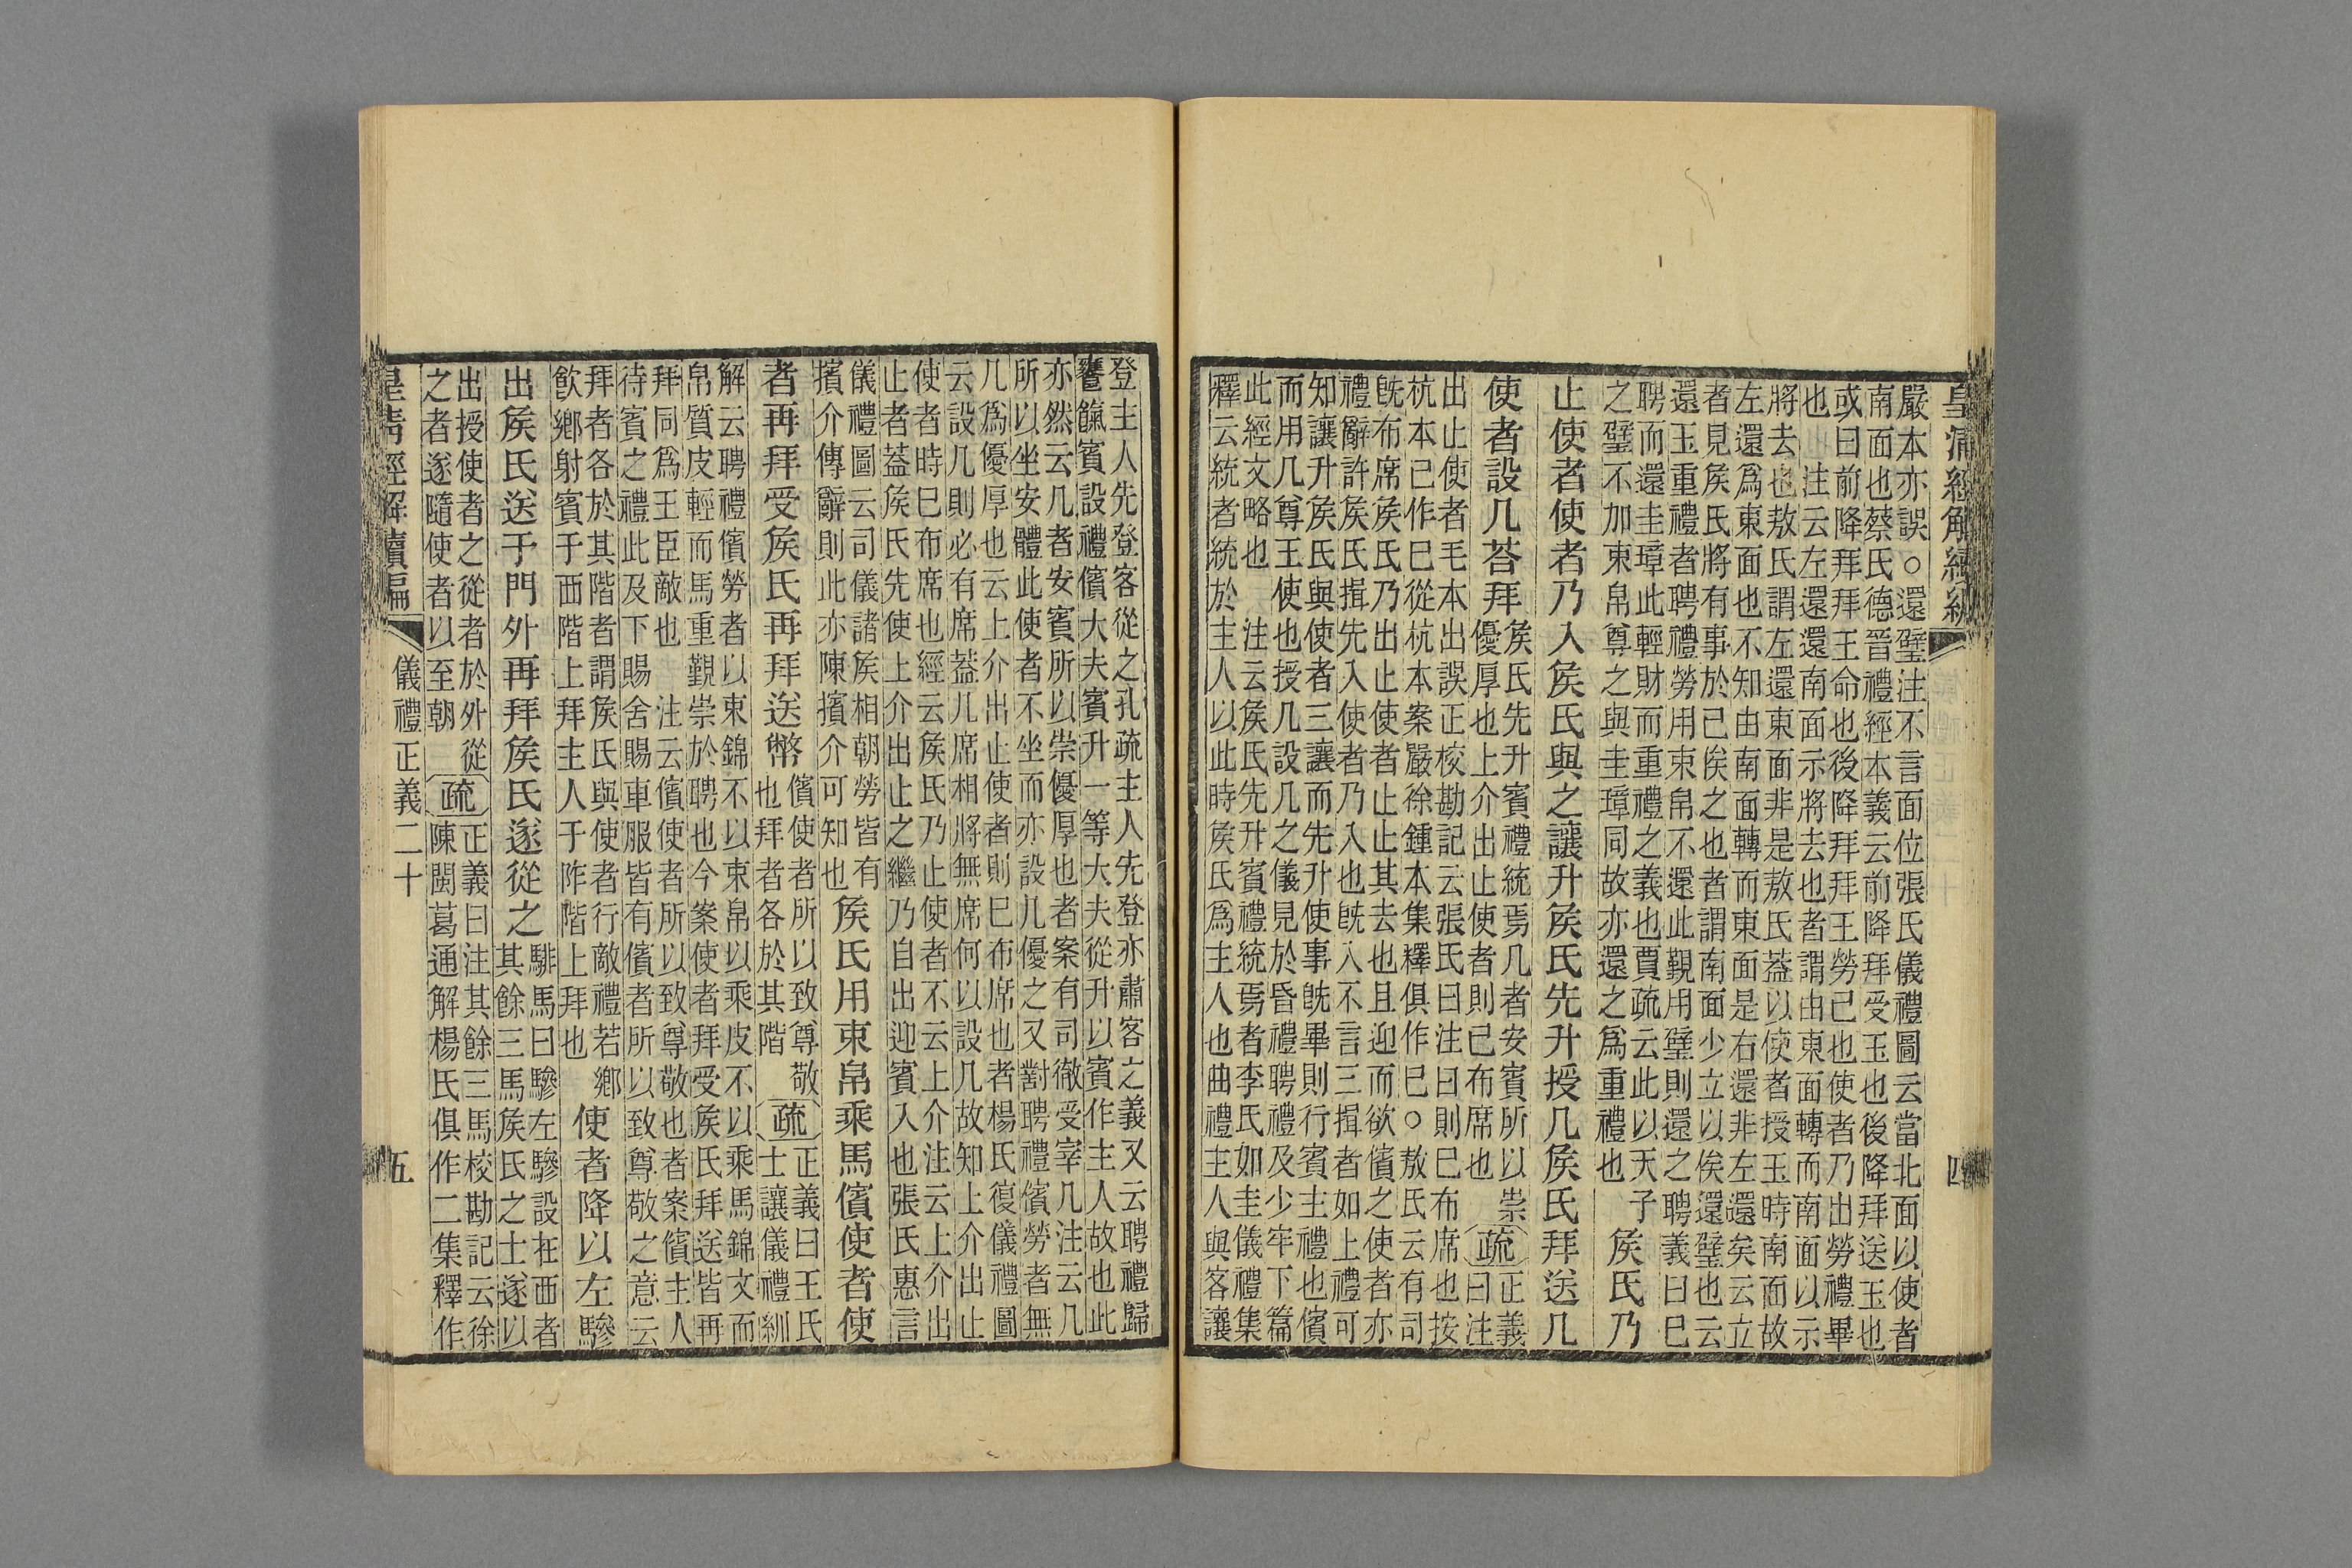 皇清經解續編
四
嚴本亦誤○還璧注不言面位張氏儀禮圖云當北面以使者
南面也蔡氏德晉禮經本義云前降拜受玉也後降拜送玉也
或曰前降拜拜王命也後降拜拜王勞已也使者乃出勞禮畢
也 注云左還還南面示將去也者謂由東面轉而南面以示
將去也敖氏謂左還東面非是敖氏葢以使者授玉時南面故
左還爲東面也不知由南面轉而東面是右還非左還矣云立
者見矦氏將有事於已俟之也者謂南面少立以俟還璧也云
還玉重禮者聘禮勞用束帛不還此覲用璧則還之聘義曰巳
聘而還圭璋此輕財而重禮之義也賈疏云此以天子
之璧不加束帛尊之與圭璋同故亦還之爲重禮也
矦氏乃
止使者使者乃入矦氏與之讓升矦氏先升授几矦氏拜送几
使者設几荅拜
矦氏先升賓禮統焉几者安賓所以崇
優厚也上介出止使者則已布席也
疏
正義
曰注
出止使者毛本出誤正校勘記云張氏曰注曰則巳布席也按
杭本已作巳從杭本案嚴徐鍾本集釋俱作巳○敖氏云有司
旣布席矦氏乃出止使者止其去也且迎而欲儐之使者亦
禮辭許矦氏揖先入使者乃入也旣入不言三揖者如上禮可
知讓升矦氏與使者三讓而先升使事旣畢則行賓主禮也儐
而用几尊王使也授几設几之儀見於昏禮聘禮及少牢下篇
此經文略也 注云矦氏先升賓禮統焉者李氏如圭儀禮集
釋云統者統於主人以此時矦氏爲主人也曲禮主人與客讓
登主人先登客從之孔疏主人先登亦肅客之義又云聘禮歸
饔餼賓設禮儐大夫賓升一等大夫從升以賓作主人故也此
亦然云几者安賓所以崇優厚也者案有司徹受宰几注云几
所以坐安體此使者不坐而亦設几優之又對聘禮儐勞者無
几爲優厚也云上介出止使者則巳布席也者楊氏復儀禮圖
云設几則必有席葢几席相將無席何以設几故知上介出止
使者時巳布席也經云矦氏乃止使者不云上介注云上介出
止者葢矦氏先使上介出止之繼乃自出迎賓入也張氏惠言
儀禮圖云司儀諸矦相朝勞皆有
擯介傳辭則此亦陳擯介可知也
矦氏用束帛乘馬儐使者使
者再拜受矦氏再拜送幣
儐使者所以致尊敬
也拜者各於其階
疏
正義曰王氏
士讓儀禮紃
解云聘禮儐勞者以束錦不以束帛以乘皮不以乘馬錦文而
帛質皮輕而馬重覲崇於聘也今案使者拜受矦氏拜送皆再
拜同爲王臣敵也 注云儐使者所以致尊敬也者案儐主人
待賓之禮此及下賜舍賜車服皆有儐者所以致尊敬之意云
拜者各於其階者謂矦氏與使者行敵禮若鄉
飮鄉射賓于西階上拜主人于阼階上拜也
使者降以左驂
出矦氏送于門外再拜矦氏遂從之
騑馬曰驂左驂設在西者
其餘三馬矦氏之士遂以
出授使者之從者於外從
之者遂隨使者以至朝
疏
正義曰注其餘三馬校勘記云徐
陳閩葛通解楊氏俱作二集釋作
皇淸經解續編
儀禮正義二十
五